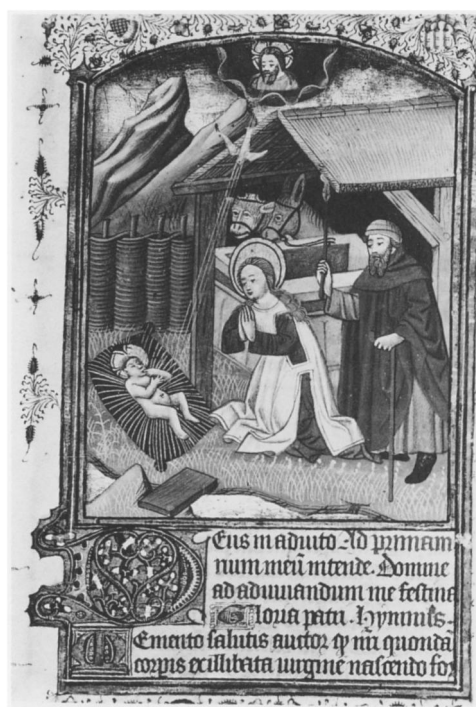 Deus in adiuto Ad primam
rium meũ intende. Domine
ad adiuuandum me festina
Gloria patri. Hymnus.
Memento salutis auctor qͥ nr̃i quondã
corpis ex illibata uirgine nascendo for